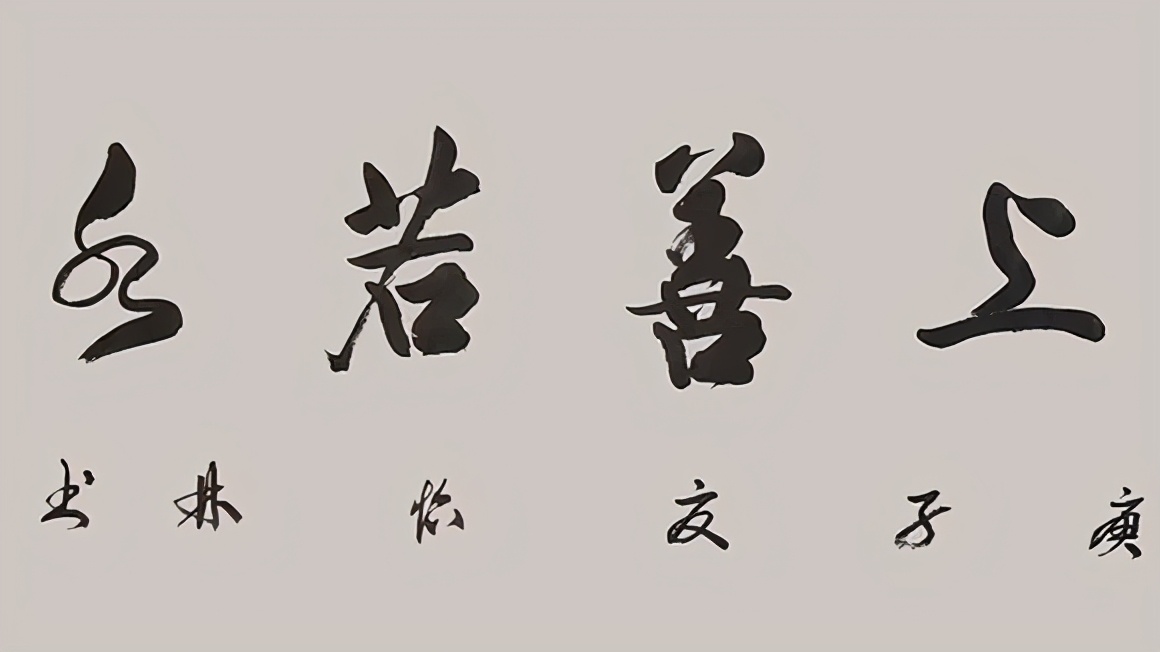 上善若水
庚子夏怡林书